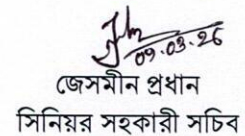 09.03.26
জেসমীন প্রধান
সিনিয়র সহকারী সচিব